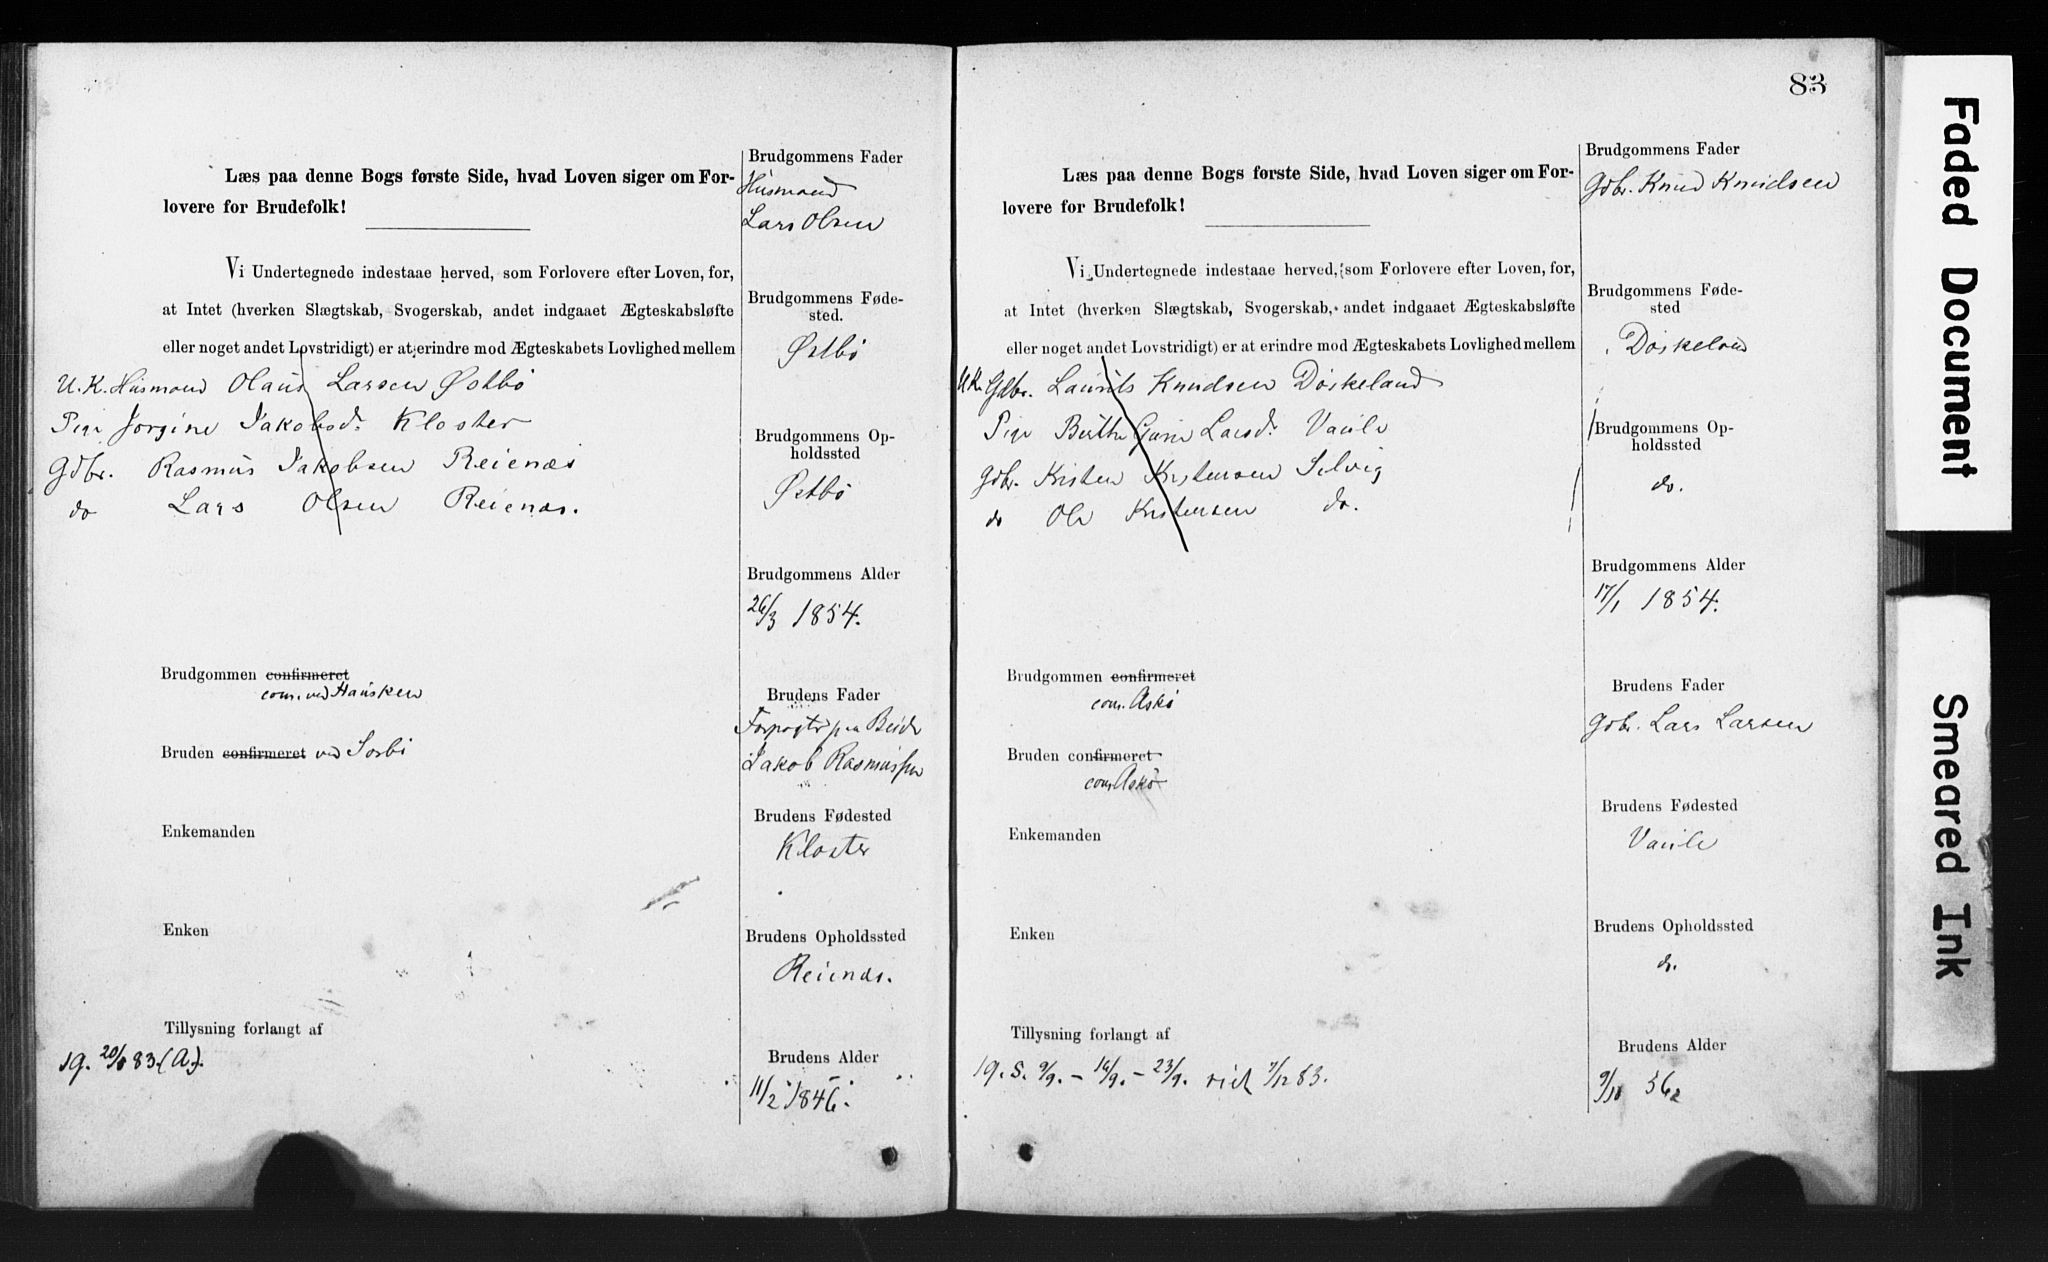 Læs paa denne Bogs første Side, hvad Loven siger om For-
lovere for Brudefolk!
Vi Undertegnede indestaae herved, som Forlovere efter Loven, for,
at Intet (hverken Slægtskab, Svogerskab, andet indgaaet Ægteskabsløfte
eller noget andet Lovstridigt) er at erindre mod Ægteskabets Lovlighed mellem
U. K. Husmand Olaus Larsen Østbø
Pige Jorgine Jakobsd. Kloster
Gdbr. Rasmus Jakobsen Reienæs
do Lars Olsen Reienæs.
Brudgommen confirmeret
com. ved Hausken
Bruden confirmeret ved Sørbø
Enkemanden
Enken
Tillysning forlangt af
19. 20/8 83. (A).
Brudgommens Fader
Husmand
Lars Olsen
Brudgommens Føde-
sted.
Østbø
Brudgommens Op-
holdssted
Østbø
Brudgommens Alder
26/3 1854.
Brudens Fader
Forpagter paa
Jakob Rasmussen
Brudens Fødested
Kloster
Brudens Opholdssted
Reienæs.
Brudens Alder
11/2 1846.
83
Læs paa denne Bogs første Side, hvad Loven siger om For-
lovere for Brudefolk!
Vi Undertegnede indestaae herved, som Forlovere efter Loven, for,
at Intet (hverken Slægtskab, Svogerskab, andet indgaaet Ægteskabsløfte
eller noget andet Lovstridigt) er at erindre mod Ægteskabets Lovlighed mellem
U. K. Gdbr. Laurits Knudsen Døskeland
Pige Berthe Larsd. Vaule
Gdbr. Kristen Kristensen Selvig
do Ole Kristensen do.
Brudgommen confirmeret
com. Askø
Bruden confirmeret
com. Askø
Enkemanden
Enken
Tillysning forlangt af
19. S. 9/9. – 16/9. – 23/9. viet 7/12 83.
Brudgommens Fader
Gdbr. Knud Knudsen
Brudgommens Føde-
sted
Døskeland
Brudgommens Op-
holdssted
do.
Brudgommens Alder
17/1 1854.
Brudens Fader
Gdbr. Lars Larsen
Brudens Fødested
Vaule
Brudens Opholdssted
do.
Brudens Alder
9/10 56
Faded Document
Smeared Ink